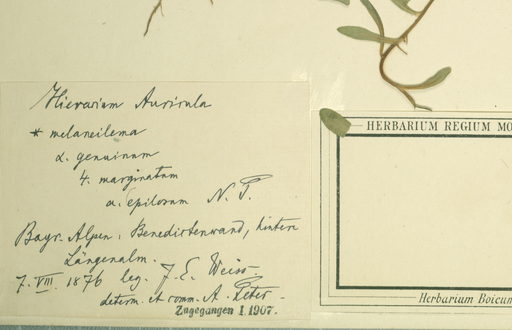 Hieracium Auricula
* melaneilema
α. genuinum
4. marginatum
a. epilosum N. P.
Bayr. Alpen: Benedictenwand, hintere
Längenalm.
7. VIII. 1876 leg. J. E. Weiss.
determ. et comm. A. Peter.
Zugegangen I. 1907.
HERBARIUM REGIUM MO
Herbarium Boicum